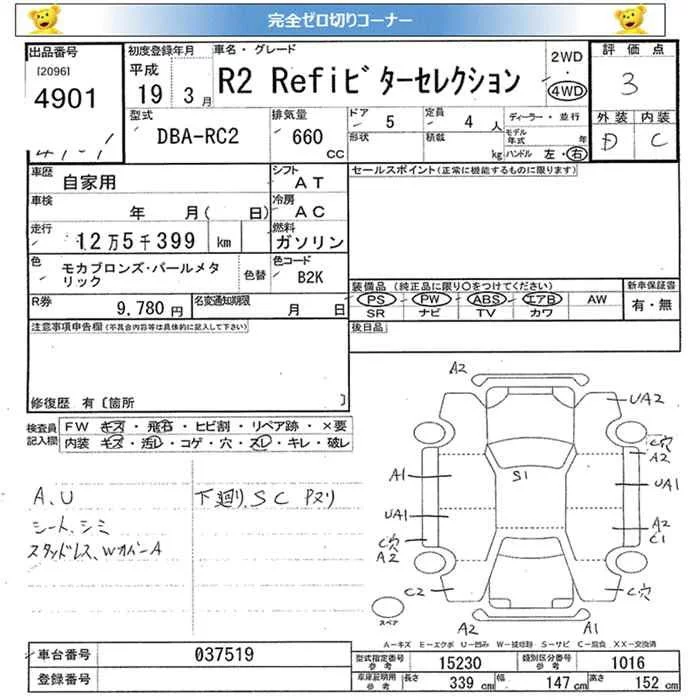 完全ゼロ切りコーナー
出品番号
[2096]
4901
初度登録年月
平成 19 3月
車名・グレード
R2 Refiビターセレクション
2WD
・
4WD
評価点
3
外装 内装
D C
型式
DBA-RC2
排気量
660
CC
ドア 5
定員 4 人
形状
積載 kg
ディーラー・並行
モデル年式 年
ハンドル 左・右
車歴 自家用
シフト AT
車検 年 月( 日)
冷房 AC
走行 12万5千399 km
燃料 ガソリン
色 モカブロンズ・パールメタリック
色替
色コード B2K
R券 9,780円
名変通知期限 月 日
セールスポイント(正常に機能するものに限ります)
装備品 (純正品に限り○をつけてください)
PS PW ABS エアB AW
SR ナビ TV カワ
新車保証書
有・無
後日品
注意事項申告欄(不具合内容等は具体的に記入して下さい)
修復歴 有〔箇所 〕
検査員記入欄
FW キズ・飛石・ヒビ割・リペア跡・×要
内装 キズ・汚レ・コゲ・穴・スレ・キレ・破レ
A、U
シート、シミ
スタッドレス、WカバーA
下廻り、SC Pヌリ
A2
UA2
C穴
A2
A1
S1
UA1
UA1
C穴
A2
A2
C1
C2
C穴
A2
A1
スペア
A-キズ E-エクボ U-凹み W-補修跡 S-サビ C-腐食 XX-交換済
車台番号 037519
登録番号
型式指定番号参考 15230
類別区分番号参考 1016
車庫証明用参考 長さ 339cm 幅 147cm 高さ 152cm